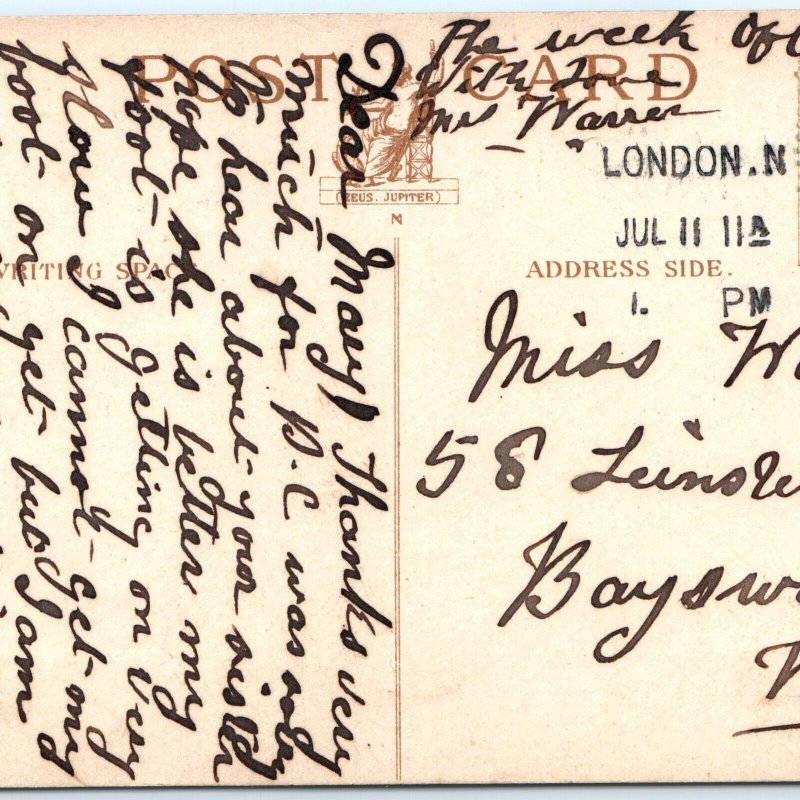 The week
With love
Mrs Warren
POST CARD
(ZEUS. JUPITER)
N
LONDON. N
JUL 11 11A
1. PM
WRITING SPAC
ADDRESS SIDE.
Miss W
58 Leinste
Baysw
W
Dear Mary Thanks very
much for P.C was sorry
to hear about your sister
hope she is better my
foot is getting on very
slow I cannot get my
foot on get but I am